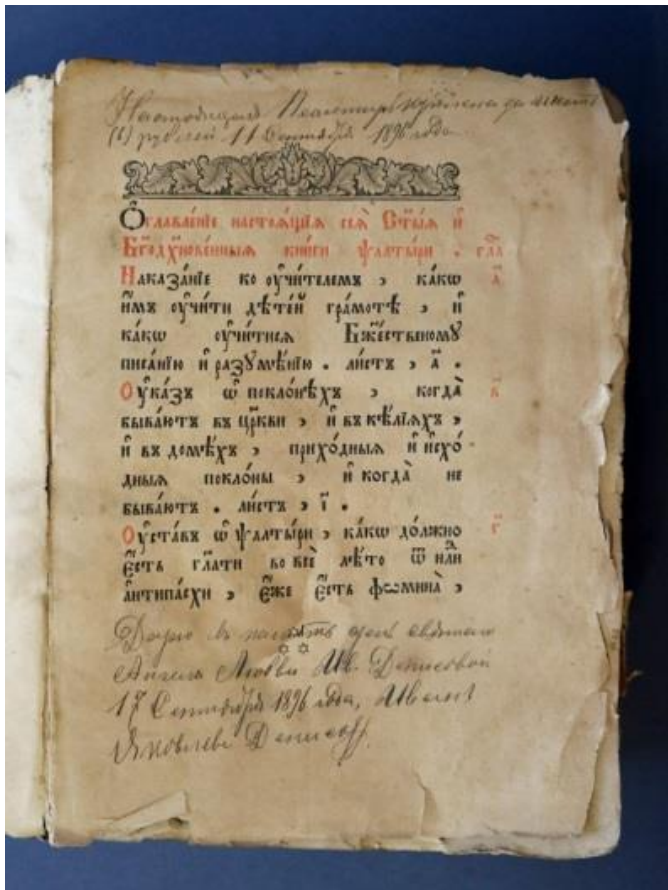 Настоящая Псалтирь куплена за шесть
(6) рублей 11 Сентября 1896 года
Ѻ҆главле́нїе настоѧ́щїѧ сеѧ̀ Ст҃ы́ѧ и҆
Бг҃одх҃нове́нныѧ кни́ги ѱалты́ри . гла̑
Наказа́нїе ко ᲂу҆чи́телемъ , ка́кѡ
и҆̀мъ ᲂу҆чи́ти дѣте́й гра́мотѣ , и҆ а҃
ка́кѡ ᲂу҆чи́тисѧ Бж҃е́ственомꙋ
писа́нїю и҆ разꙋмѣ́нїю . ли́стъ , а҃ .
Оу҆ка́зъ ѡ҆ покло́нѣхъ , когда̀ в҃
быва́ютъ въ цр҃кви , и҆ въ кѣ́лїѧхъ ,
и҆ въ домѣ́хъ , прихо́дныѧ и҆ и҆схо́
дныѧ покло́ны , и҆ когда̀ не
быва́ютъ . ли́стъ , і҃ .
Оу҆ста́въ ѡ҆ ѱалты́ри , ка́кѡ до́лжно г҃
є҆́сть гл҃ати во всѐ лѣ́то ѿ нⷣли
а҆нтипа́схи , є҆́же є҆́сть ѳѡмина̀ ,
Дарю в память дня святого
Ангела Любви Ив. Денисовой
17 Сентября 1896 года, Иванъ
Яковлевъ Денисовъ.